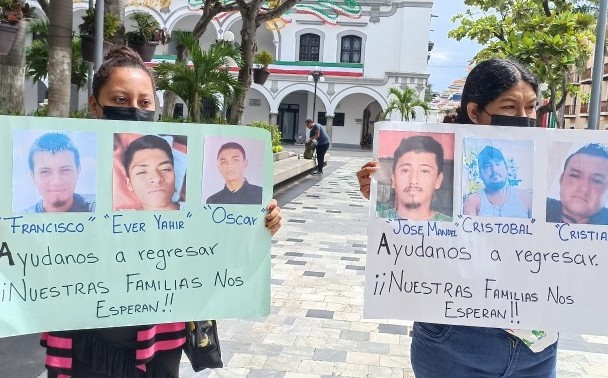 "FRANCISCO" "EVER YAHIR" "OSCAR"
AYUDANOS A REGRESAR
¡¡NUESTRAS FAMILIAS NOS
ESPERAN!!
"JOSE MANUEL" "CRISTOBAL" "CRISTIA
AYUDANOS A REGRESAR.
¡¡NUESTRAS FAMILIAS NOS
ESPERAN!!